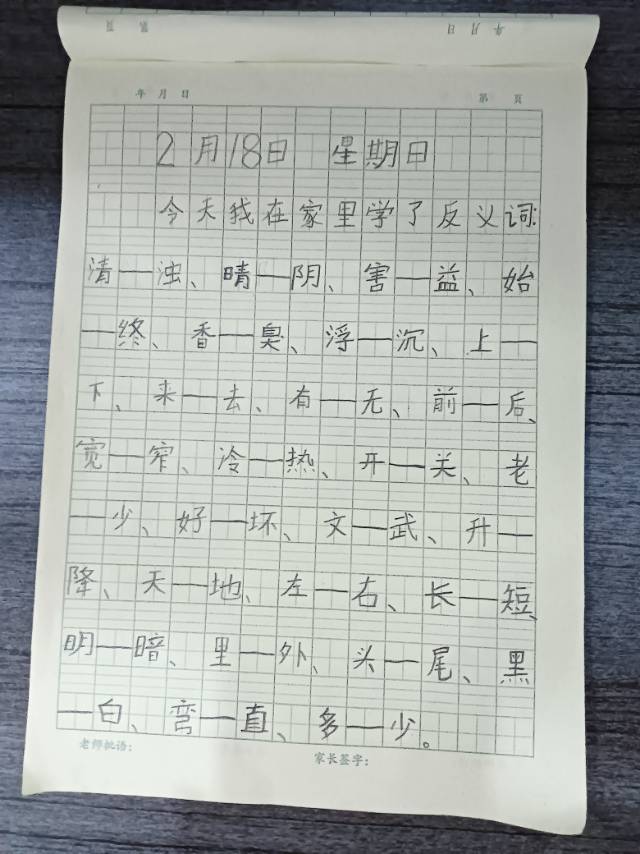 第 页
年 月 日
年 月 日
第 页
2月18日 星期日
今天我在家里学了反义词:
清——浊、晴——阴、害——益、始
——终、香——臭、浮——沉、上——
下、来——去、有——无、前——后、
宽——窄、冷——热、开——关、老
——少、好——坏、文——武、升——
降、天——地、左——右、长——短、
明——暗、里——外、头——尾、黑
——白、弯——直、多——少。
老师批语:
家长签字: